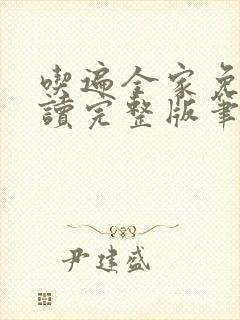 喫遍全家免
讀完整版筆
尹建盛